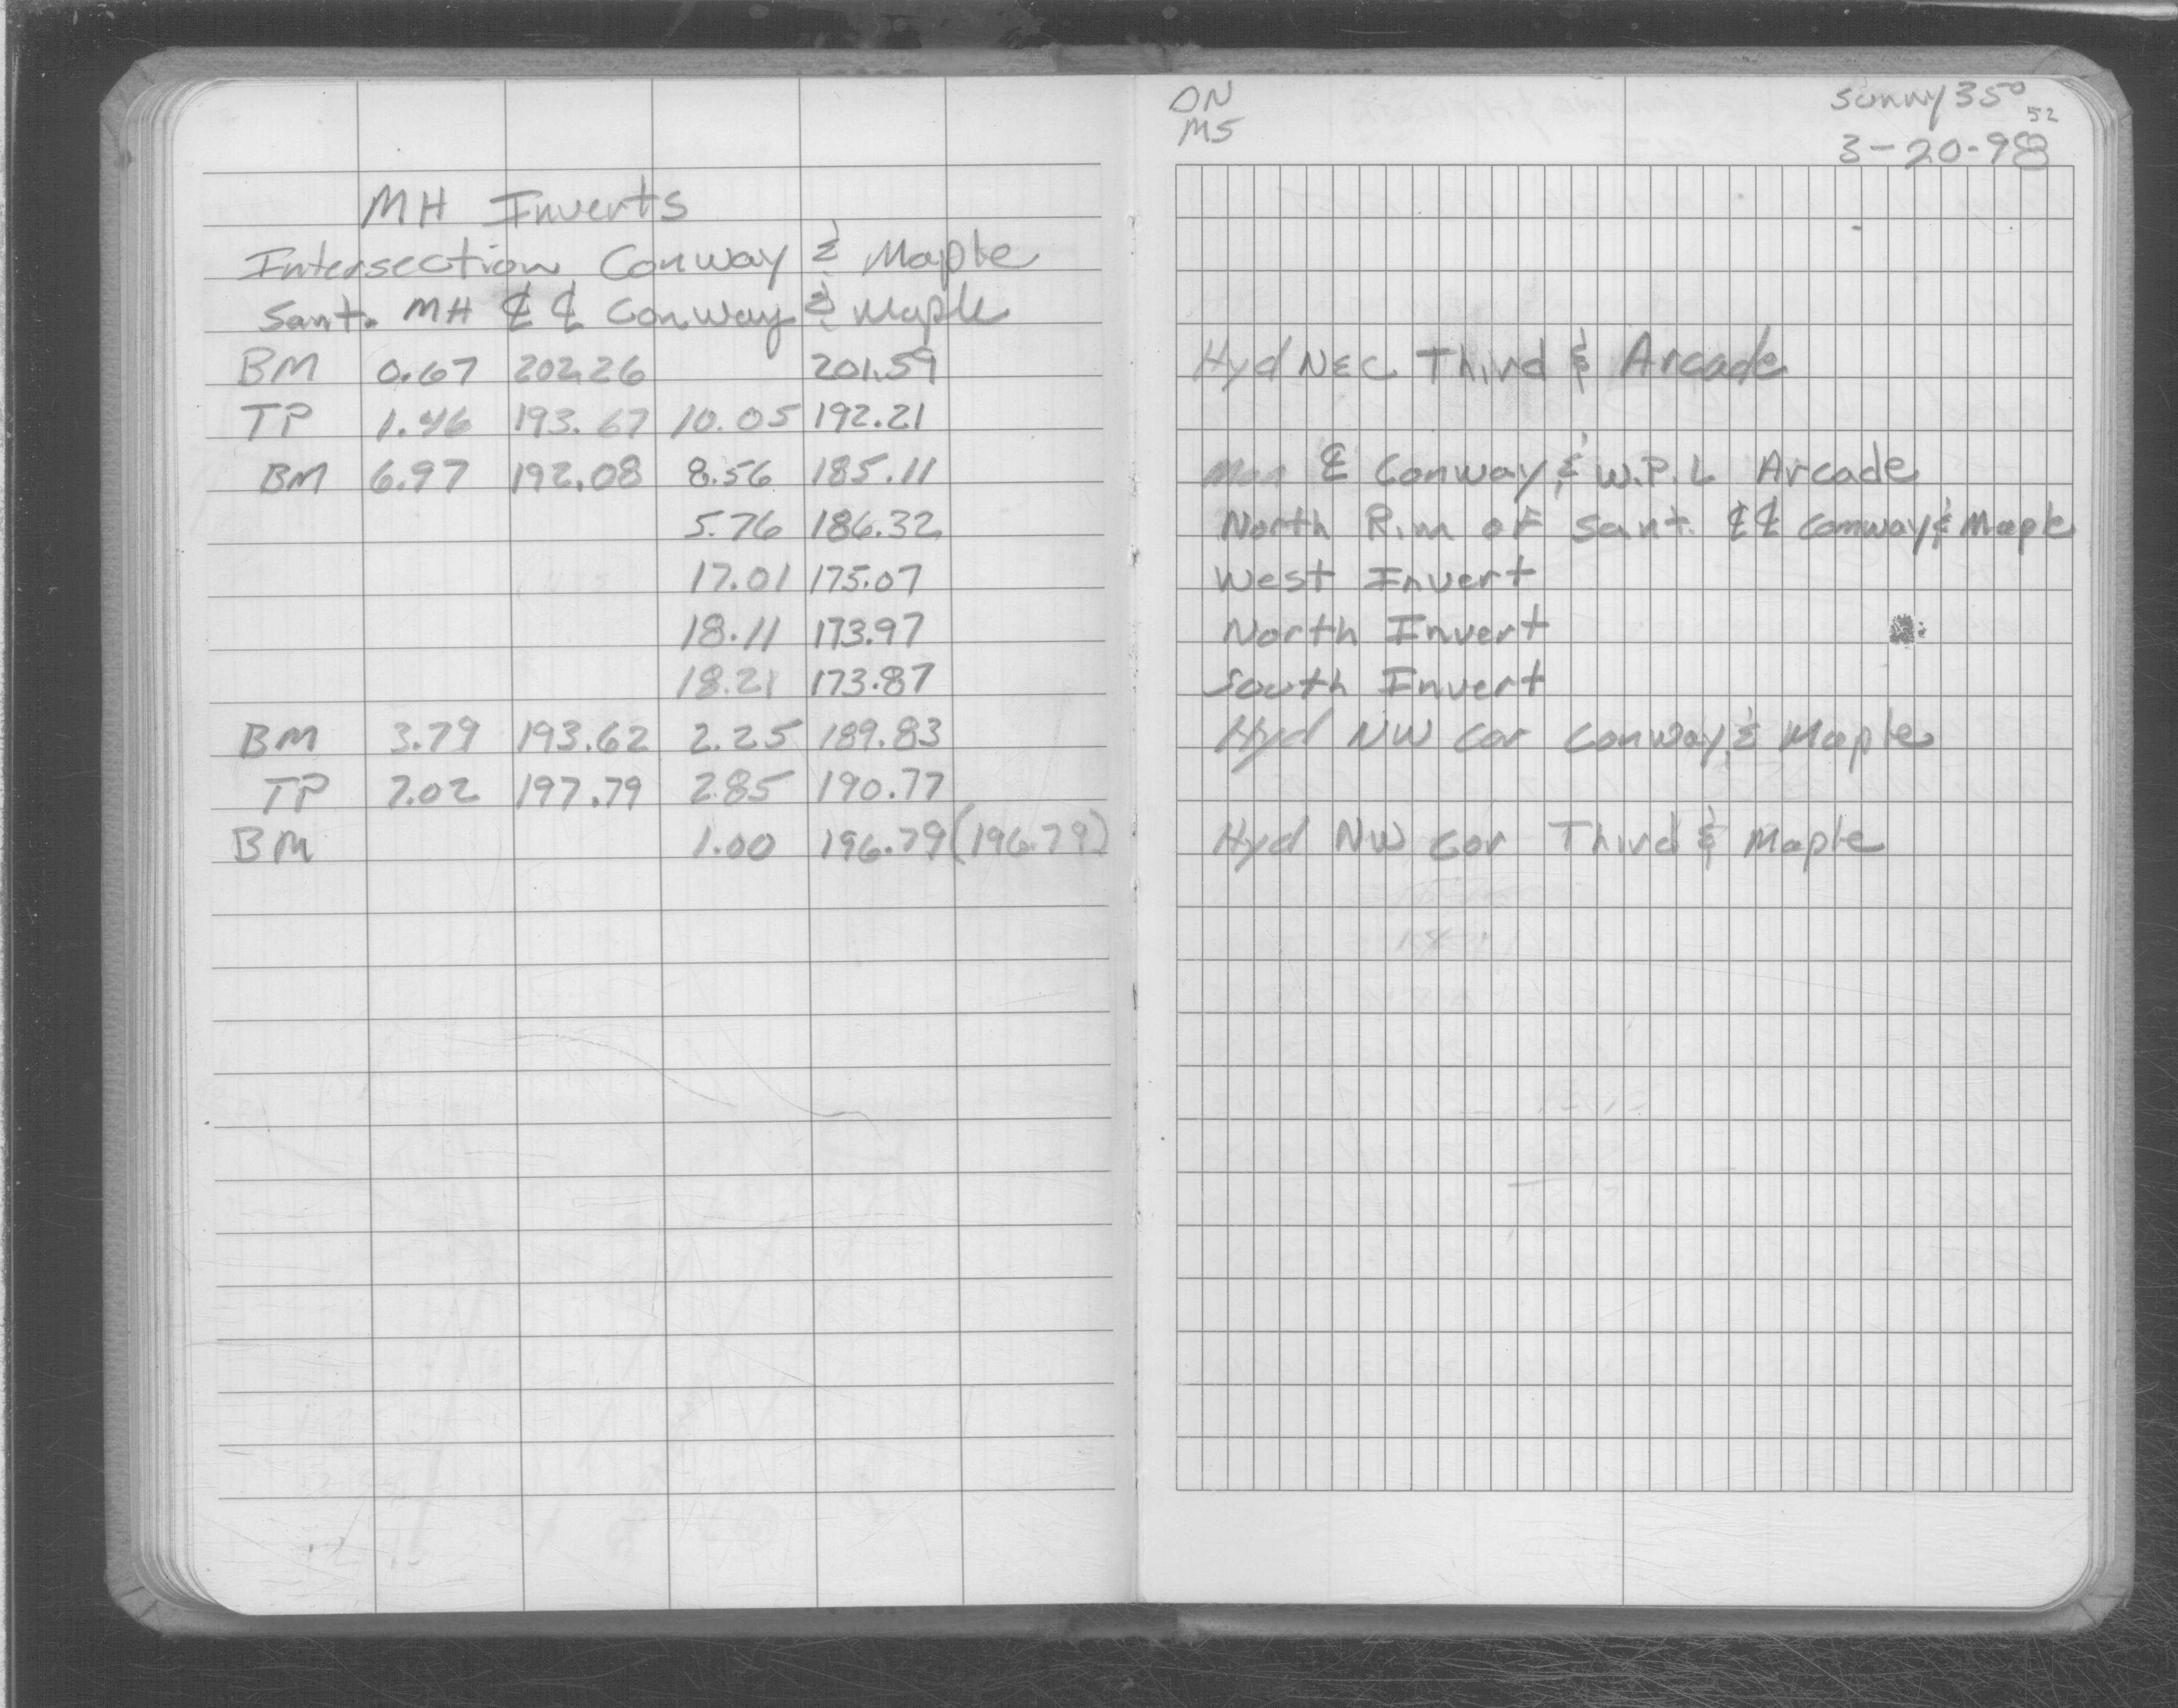 MH Inverts
Intersection Conway & Maple
Sant. MH ℄ ℄ Conway & Maple
BM 0.67 202.26 201.59
TP 1.46 193.67 10.05 192.21
BM 6.97 192.08 8.56 185.11
5.76 186.32
17.01 175.07
18.11 173.97
18.21 173.87
BM 3.79 193.62 2.25 189.83
TP 7.02 197.79 2.85 190.77
BM 1.00 196.79 (196.79)
DN
MS
Sunny 35°
52
3-20-98
Hyd NEC Third & Arcade
Mon ℄ Conway & W.P.L Arcade
North Rim of Sant. ℄ ℄ Conway & Maple
West Invert
North Invert
South Invert
Hyd NW Cor Conway & Maple
Hyd NW Cor Third & Maple